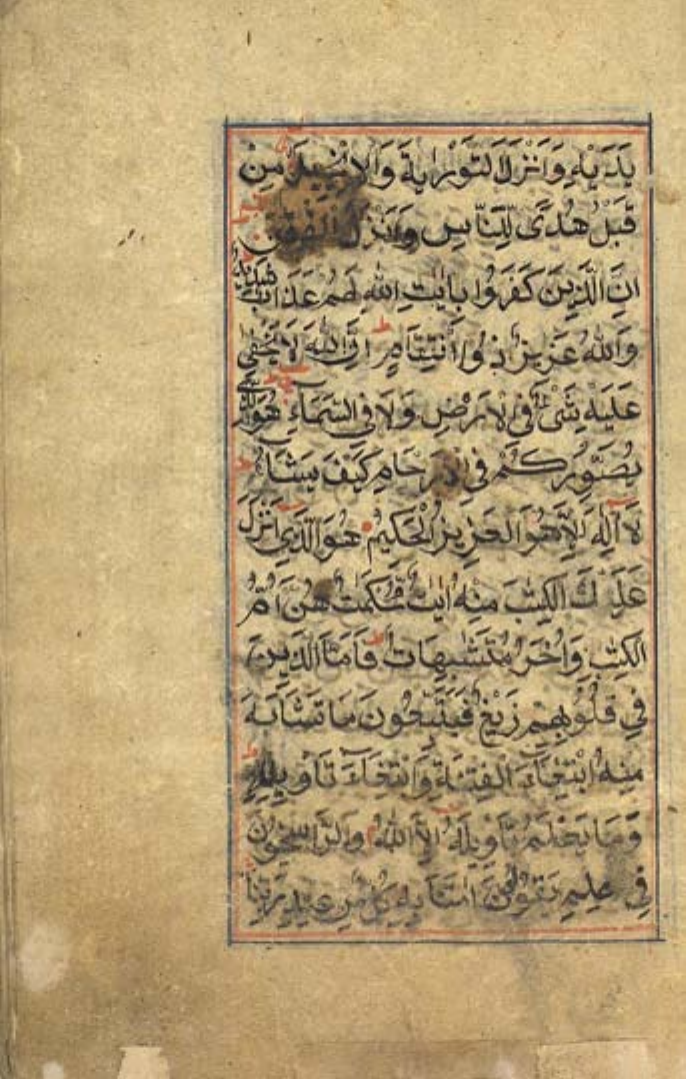 يَدَيْهِ وَاَنْزَلَ التَّوْرٰيةَ وَالْاِنْجِيلَ مِنْ
قَبْلُ هُدًى لِلنَّاسِ وَاَنْزَلَ الْفُرْقَانَ
اِنَّ الَّذِينَ كَفَرُوا بِاٰيٰتِ اللّٰهِ لَهُمْ عَذَابٌ شَدِيدٌ
وَاللّٰهُ عَزِيزٌ ذُو انْتِقَامٍ ط اِنَّ اللّٰهَ لَا يَخْفٰى
عَلَيْهِ شَيْءٌ فِي الْاَرْضِ وَلَا فِي السَّمَاءِ هُوَ الَّذِي
يُصَوِّرُكُمْ فِي الْاَرْحَامِ كَيْفَ يَشَاءُ ط
لَا اِلٰهَ اِلَّا هُوَ الْعَزِيزُ الْحَكِيمُ هُوَ الَّذِي اَنْزَلَ
عَلَيْكَ الْكِتٰبَ مِنْهُ اٰيٰتٌ مُحْكَمٰتٌ هُنَّ اُمُّ
الْكِتٰبِ وَاُخَرُ مُتَشٰبِهَاتٌ ط فَاَمَّا الَّذِينَ
فِي قُلُوبِهِمْ زَيْغٌ فَيَتَّبِعُونَ مَا تَشَابَهَ
مِنْهُ ابْتِغَاءَ الْفِتْنَةِ وَابْتِغَاءَ تَاْوِيلِهِ ط
وَمَا يَعْلَمُ تَاْوِيلَهُ اِلَّا اللّٰهُ م وَالرَّاسِخُونَ
فِي عِلْمِ يَقُولُونَ اٰمَنَّا بِهِ كُلٌّ مِنْ عِنْدِ رَبِّنَا